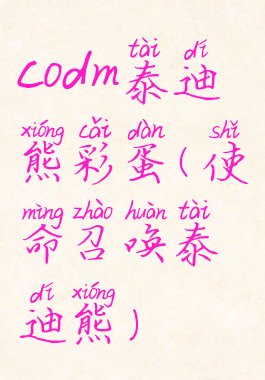 tài dí
codm泰迪
xióng cǎi dàn shǐ
熊彩蛋(使
mìng zhào huàn tài
命召唤泰
dí xióng
迪熊)